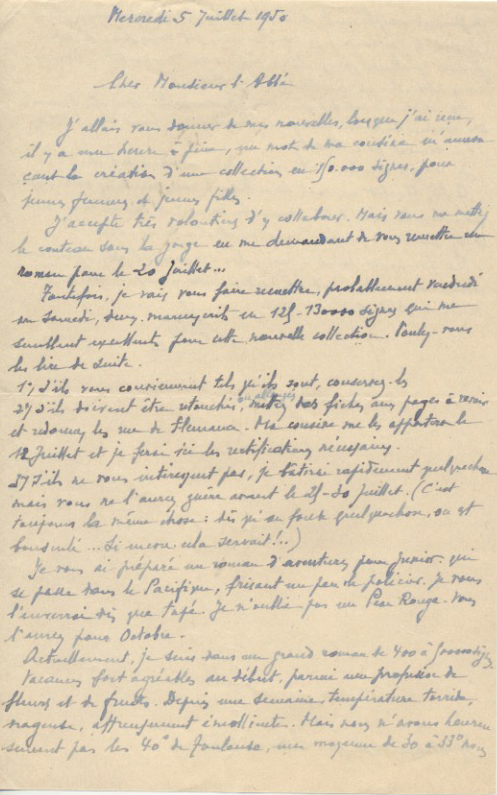 Mercredi 5 Juillet 1950
Cher Monsieur l'Abbé
J'allais vous donner de mes nouvelles, lorsque j'ai reçu,
il y a une heure à peine, un mot de ma cousine m'annon
çant la création d'une collection en 150.000 signes, pour
jeunes femmes et jeunes filles.
J'accepte très volontiers d'y collaborer. Mais vous me mettez
le couteau sous la gorge en me demandant de vous remettre un
roman pour le 20 Juillet...
Toutefois, je vais vous faire remettre, probablement vendredi
ou samedi, deux manuscrits en 125-130000 signes qui me
semblent excellents pour cette nouvelle collection. Voulez-vous
les lire de suite.
1°/ S'ils vous conviennent tels qu'ils sont, conservez-les
ou allongés
2°/ S'ils doivent être retouchés, mettez des fiches aux pages à revoir
et redonnez les rue de . Ma cousine me les apportera le
12 Juillet et je ferai ici les rectifications nécessaires.
3°/ S'ils ne vous intéressent pas, je bâtirai rapidement quelque chose
mais vous ne l'aurez guère avant le 25-30 Juillet. (C'est
toujours la même chose : dès qu'on force quelque chose, on est
bousculé ... Si encore cela servait !..)
Je vous ai préparé un roman d'aventures pour Junior, qui
se passe dans le Pacifique, frisant un peu le policier. Je vous
l'enverrai dès que tapé. Je n'oublie pas un Peau Rouge. Vous
l'aurez pour Octobre.
Actuellement, je suis dans un grand roman de 400 à 500000 signes
Vacances fort agréables au début, parmi une profusion de
fleurs et de fruits. Depuis une semaine, température torride,
orageuse, affreusement . Mais nous n'avons heureu
sement pas les 40° de Toulouse, une moyenne de 30 à 33° nous